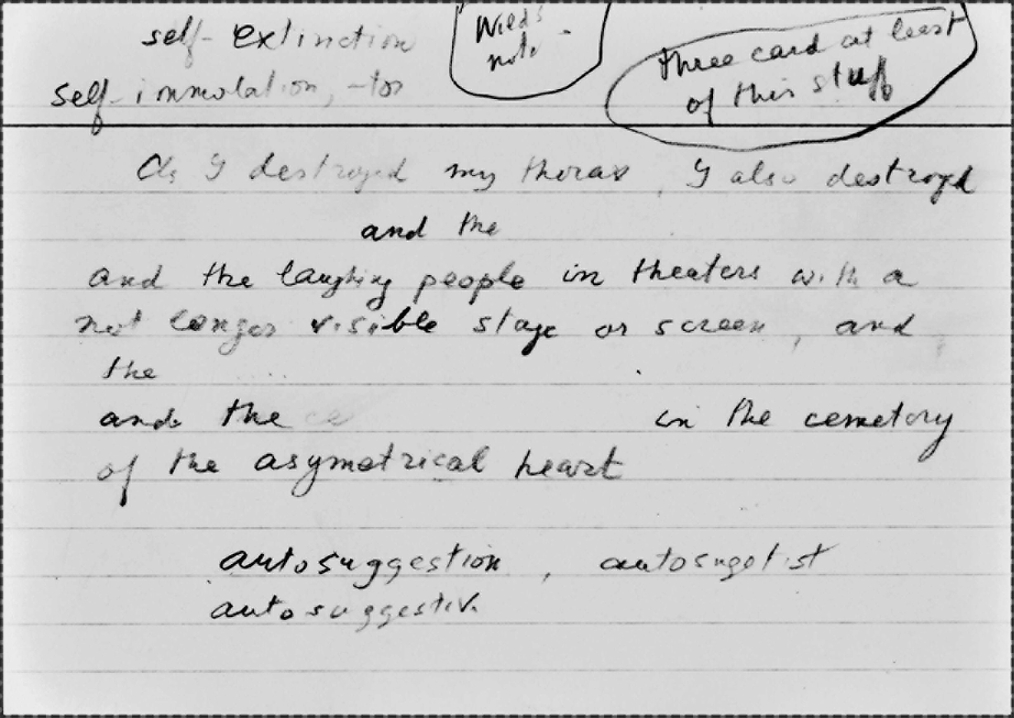 self-extinction
self-immolation, -tor
Wild's
note
three card at least
of this stuff
As I destroyed my thorax, I also destroyed
and the
and the laughing people in theaters with a
not longer visible stage or screen, and
the
and the in the cemetery
of the asymetrical heart
autosuggestion, autosugetist
autosuggestiv